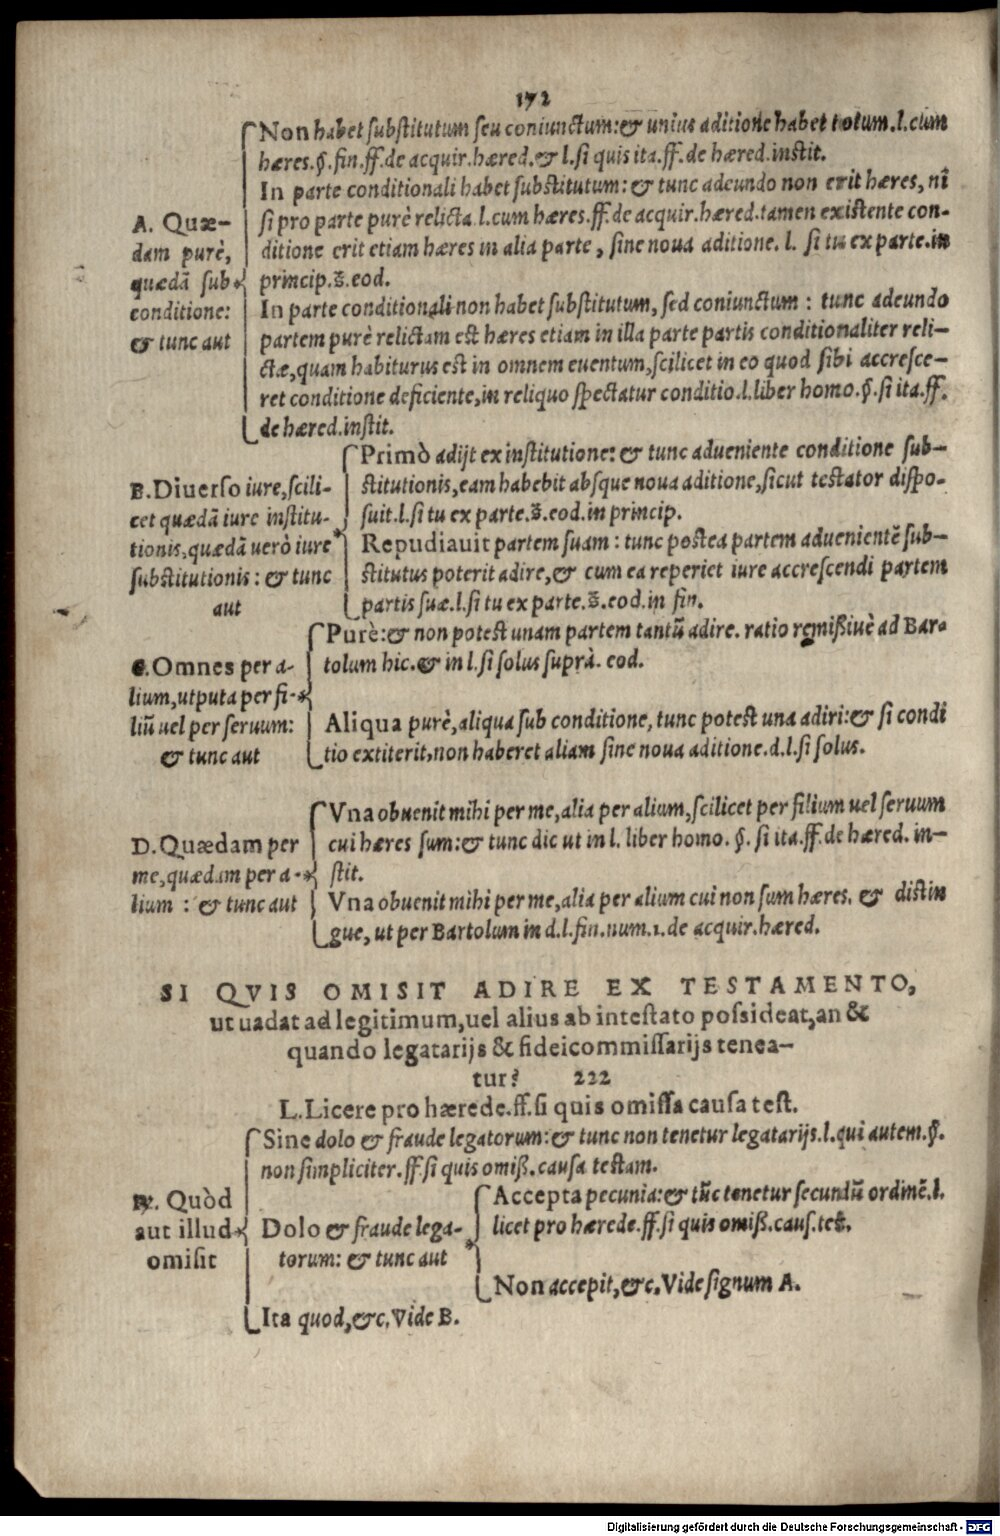 172
Non habet substitutum seu coniunctum: & unius aditione habet totum. l. cum
hæres. §. fin. ff. de acquir. hæred. & l. si quis ita. ff. de hæred. instit.
In parte conditionali habet substitutum: & tunc adeundo non erit hæres, ni
A. Quæ-
si pro parte purè relicta. l. cum hæres. ff. de acquir. hæred. tamen existente con-
dam purè,
ditione erit etiam hæres in alia parte, sine noua aditione. l. si tu ex parte. in
quædã sub
princip. s. eod.
conditione:
In parte conditionali non habet substitutum, sed coniunctum: tunc adeundo
& tunc aut
partem purè relictam est hæres etiam in illa parte partis conditionaliter reli-
ctæ, quam habiturus est in omnem euentum, scilicet in eo quod sibi accresce-
ret conditione deficiente, in reliquo spectatur conditio. l. liber homo. §. si ita. ff.
de hæred. instit.
B. Diuerso iure, scili-
cet quædã iure institu-
tionis, quædã uerò iure
substitutionis: & tunc
aut
Primò adijt ex institutione: & tunc adueniente conditione sub-
stitutionis, eam habebit absque noua aditione, sicut testator dispo-
suit. l. si tu ex parte. s. eod. in princip.
Repudiauit partem suam: tunc postea partem aduenientẽ sub-
stitutus poterit adire, & cum ea reperiet iure accrescendi partem
partis suæ. l. si tu ex parte. s. eod. in fin.
C. Omnes per a-
lium, utputa per fi-
liũ uel per seruum:
& tunc aut
Purè: & non potest unam partem tantũ adire. ratio remißiuè ad Bar-
tolum hic. & in l. si solus suprà. eod.
Aliqua purè, aliqua sub conditione, tunc potest una adiri: & si condi
tio extiterit, non haberet aliam sine noua aditione. d. l. si solus.
D. Quædam per
me, quædam per a-
lium: & tunc aut
Vna obuenit mihi per me, alia per alium, scilicet per filium uel seruum
cui hæres sum: & tunc dic ut in l. liber homo. §. si ita. ff. de hæred. in-
stit.
Vna obuenit mihi per me, alia per alium cui non sum hæres. & distin
gue, ut per Bartolum in d. l. fin. num. 1. de acquir. hæred.
SI QVIS OMISIT ADIRE EX TESTAMENTO,
ut uadat ad legitimum, uel alius ab intestato possideat, an &
quando legatarijs & fideicommissarijs tenea-
tur? 222
L. Licere pro hærede. ff. si quis omissa causa test.
Quòd
aut illud
omisit
Sine dolo & fraude legatorum: & tunc non tenetur legatarijs. l. qui autem. §.
non simpliciter. ff. si quis omiß. causa testam.
Dolo & fraude lega-
torum: & tunc aut
Accepta pecunia: & tũc tenetur secundũ ordinẽ. l.
licet pro hærede. ff. si quis omiß. caus. test.
Non accepit, &c. Vide signum A.
Ita quod, &c. Vide B.
Digitalisierung gefördert durch die Deutsche Forschungsgemeinschaft - DFG